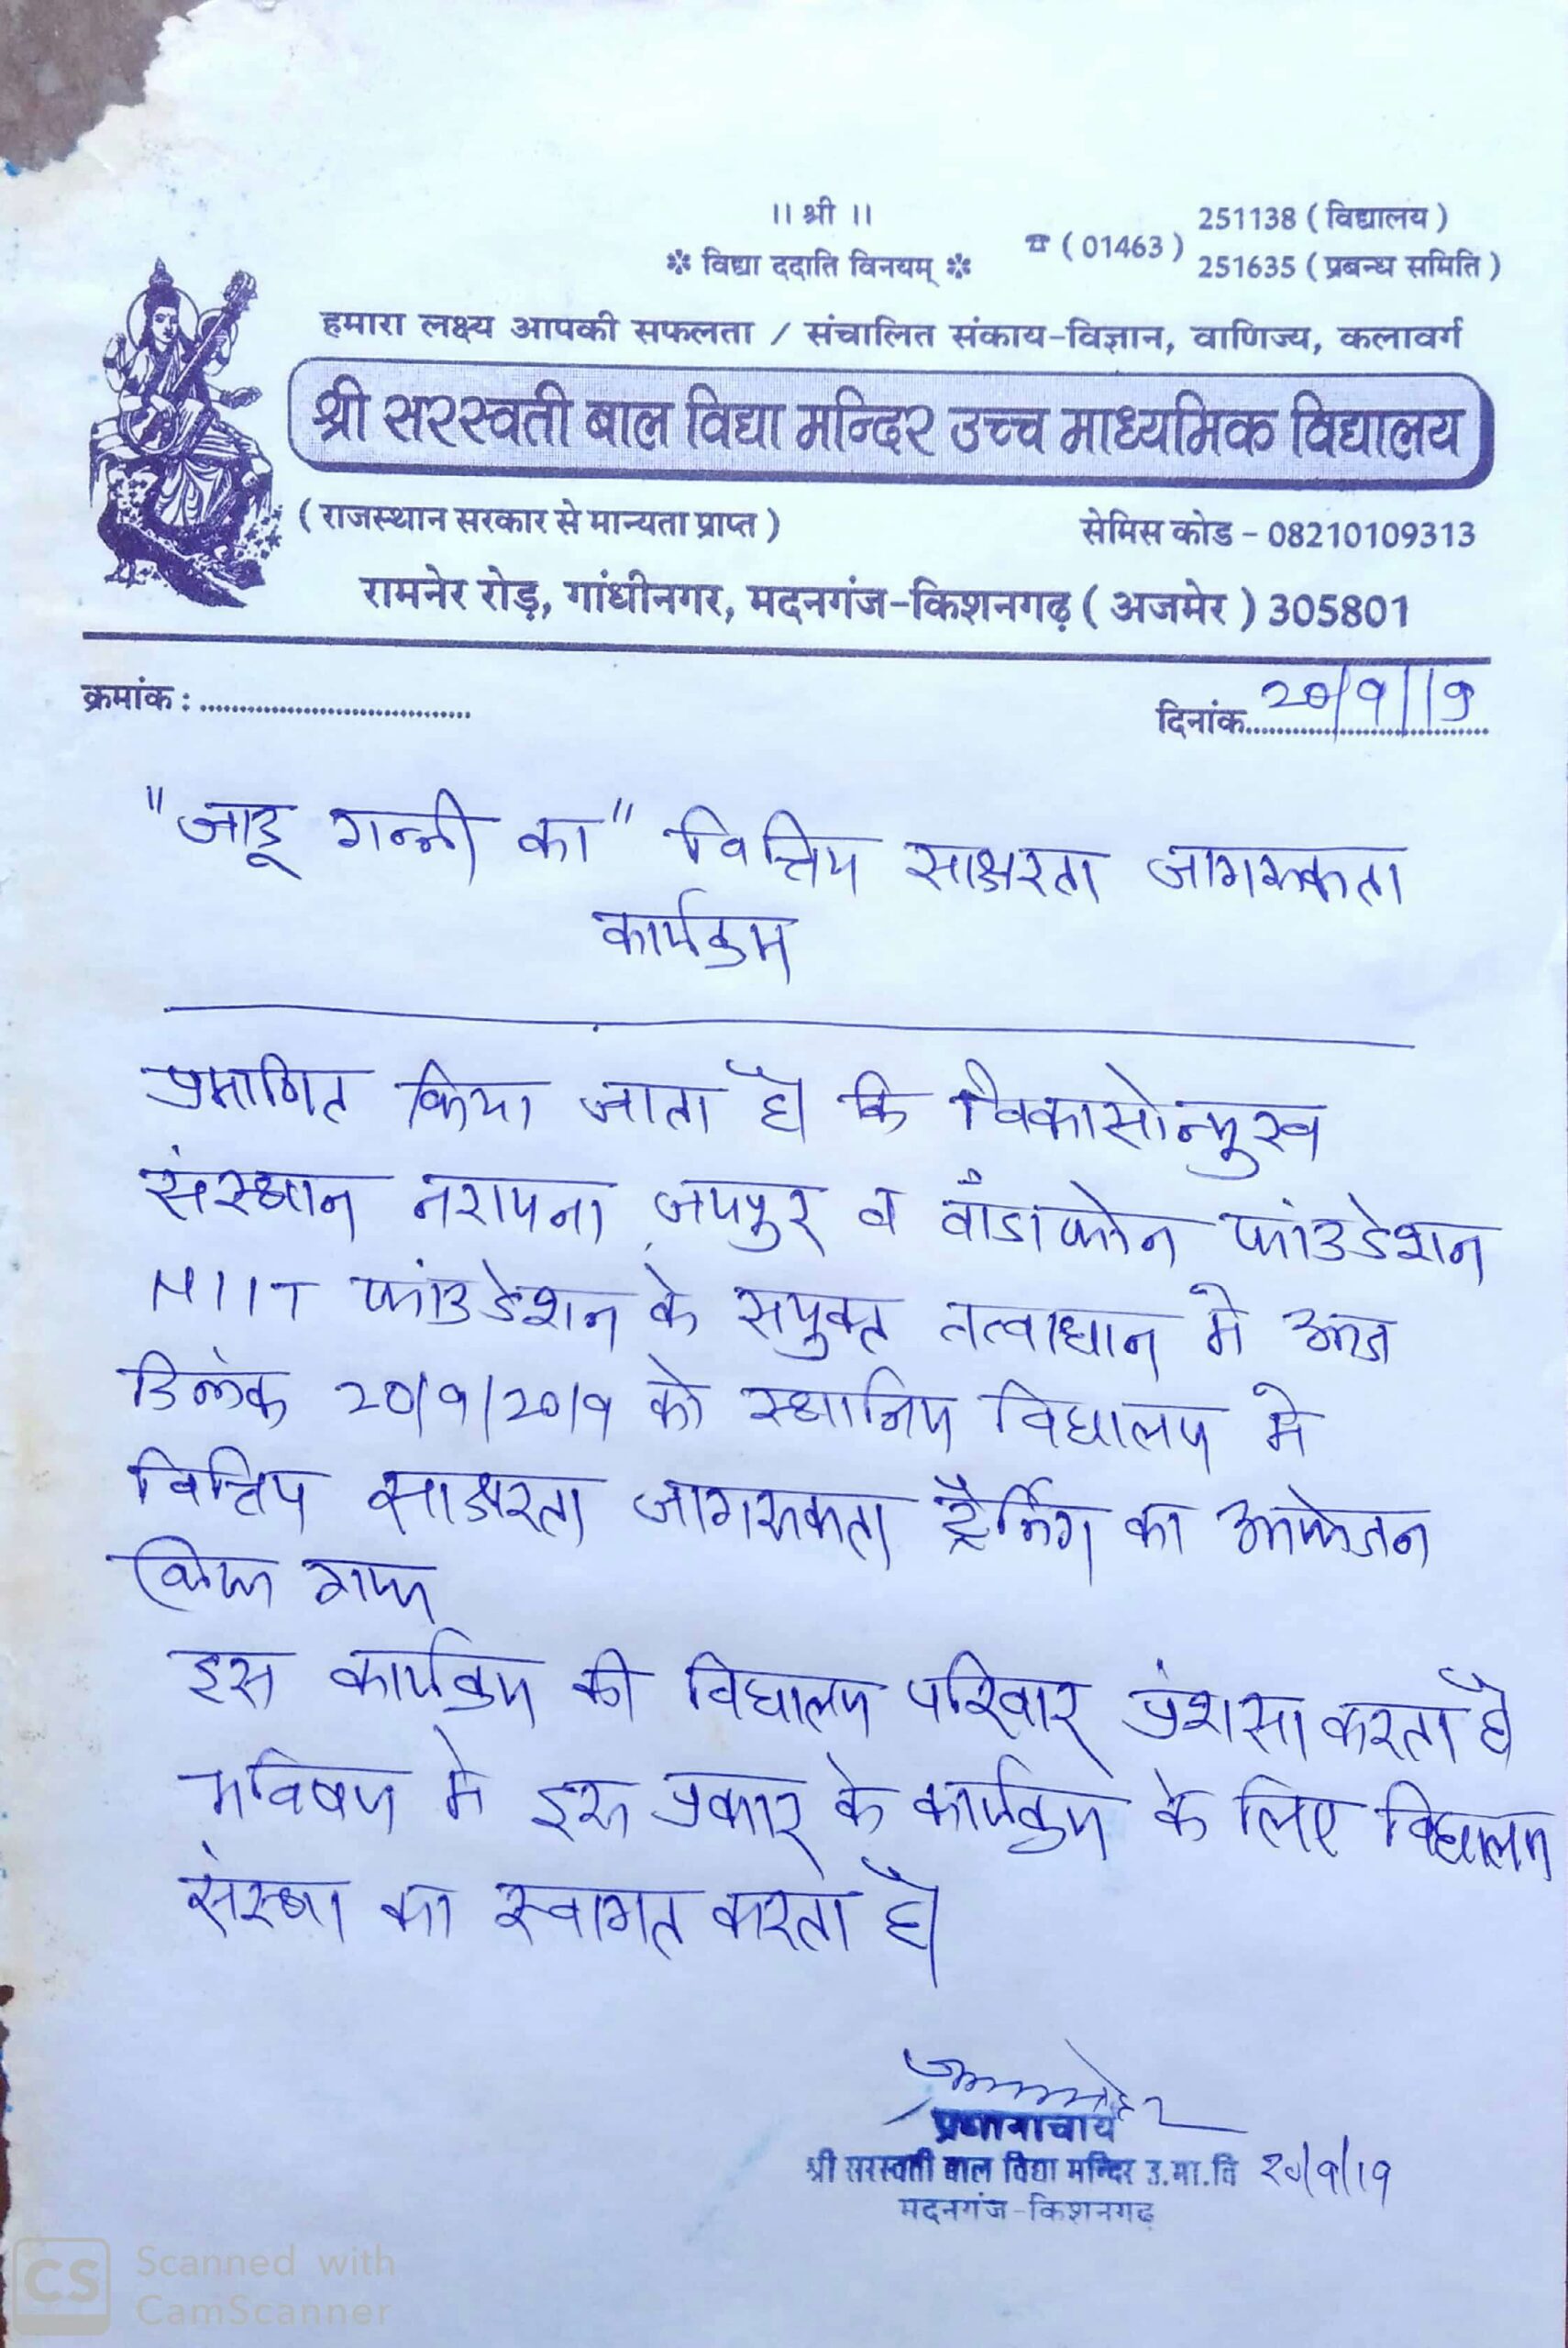 ।। श्री ।।
❇ विद्या ददाति विनयम् ❇
☎ ( 01463 ) 251138 ( विद्यालय )
251635 ( प्रबन्ध समिति )
हमारा लक्ष्य आपकी सफलता / संचालित संकाय-विज्ञान, वाणिज्य, कलावर्ग
श्री सरस्वती बाल विद्या मन्दिर उच्च माध्यमिक विद्यालय
( राजस्थान सरकार से मान्यता प्राप्त ) सेमिस कोड - 08210109313
रामनेर रोड़, गांधीनगर, मदनगंज-किशनगढ़ ( अजमेर ) 305801
क्रमांक : ................................ दिनांक 20/9/19
"जादू गन्नी का" वित्तिय साक्षरता जागरुकता
कार्यक्रम
प्रमाणित किया जाता है कि विकासोन्मुख
संस्थान नरायना जयपुर व वोडाफोन फांउडेशन
NIIT फांउडेशन के सयुक्त तत्वाधान मे आज
दिनांक 20/9/2019 को स्थानिय विद्यालय मे
वित्तिय साक्षरता जागरुकता ट्रैनिंग का आयोजन
किया गया
इस कार्यक्रम की विद्यालय परिवार प्रंशसा करता है
भविषय मे इस प्रकार के कार्यक्रम के लिए विद्यालय
संस्था का स्वागत करता है।
प्रधानाचार्य
श्री सरस्वती बाल विद्या मन्दिर उ.मा.वि 20/9/19
मदनगंज-किशनगढ़
CS Scanned with
CamScanner